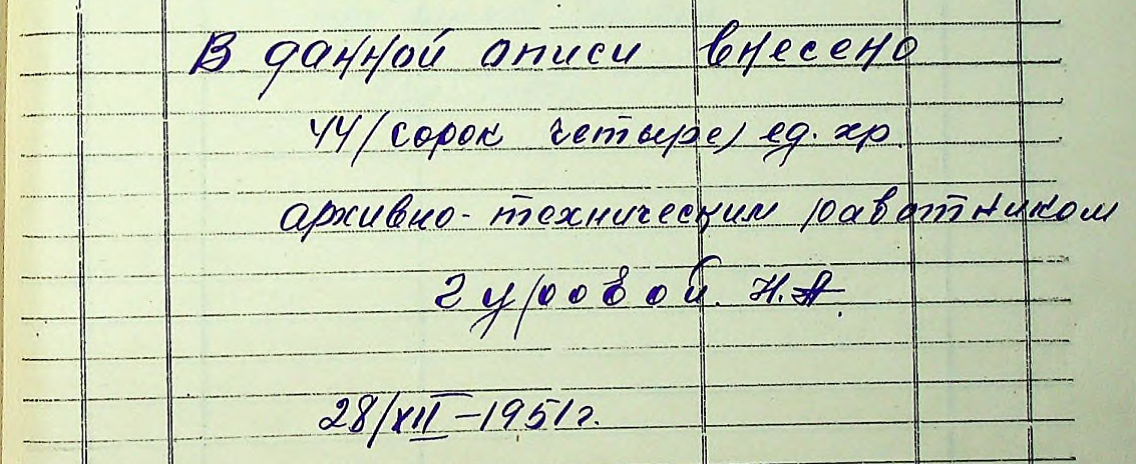 В данной описи внесено
44/сорок четыре) ед. хр.
архивно-техническим работником
Гуровой. Н.А.
28/XII-1951г.